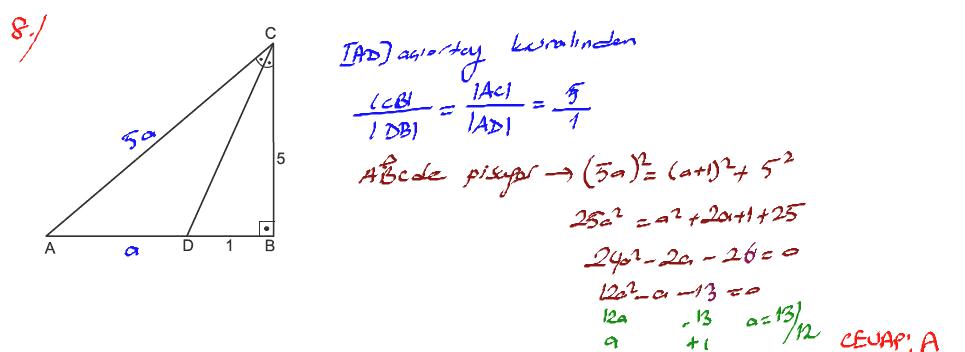 8./
C
5a
5
A
a
D
1
B
[AD] açıortay kuralından
|CB| / |DB| = |AC| / |AD| = 5/1
ABC de pisagor → (5a)² = (a+1)² + 5²
25a² = a² + 2a + 1 + 25
24a² - 2a - 26 = 0
12a² - a - 13 = 0
12a -13 a = 13/12
a +1
CEVAP: A